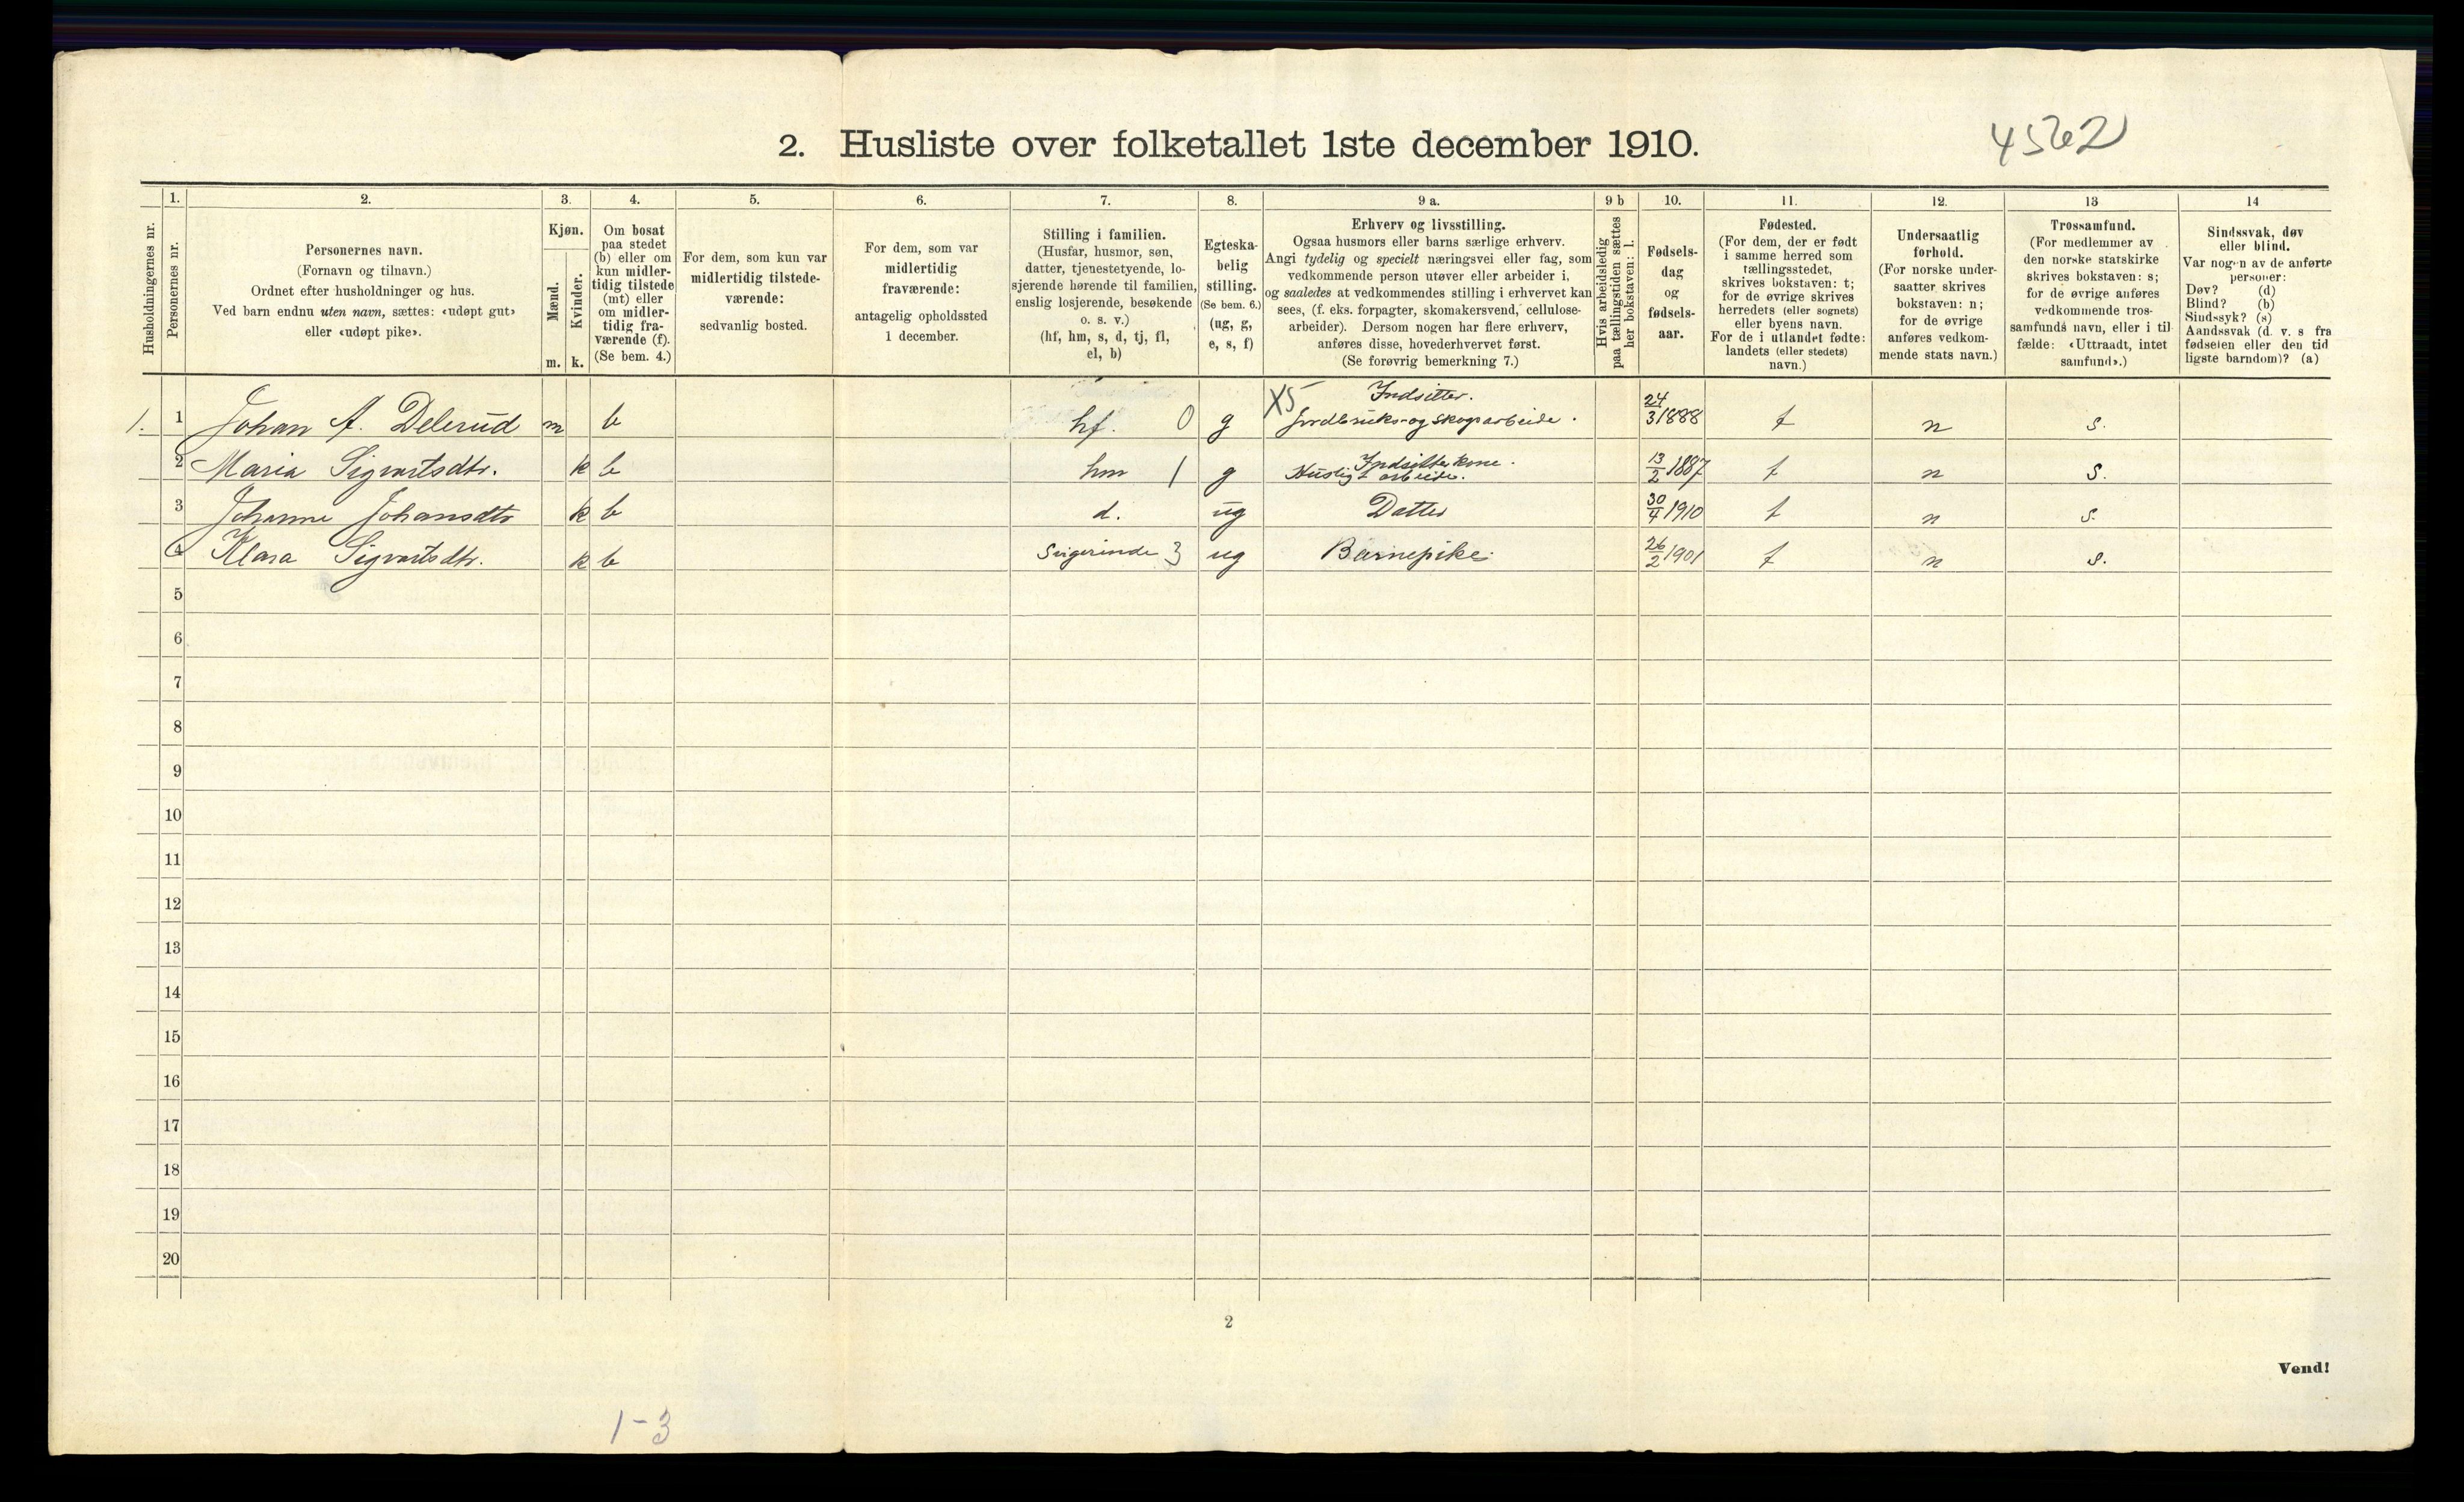 2. Husliste over folketallet 1ste december 1910.
4562
1.
2.
3.
4.
5.
6.
7.
8.
9 a.
9 b
10.
11.
12.
13
14
Husholdningernes nr.
Personernes nr.
Personernes navn.
(Fornavn og tilnavn.)
Ordnet efter husholdninger og hus.
Ved barn endnu uten navn, sættes: «udøpt gut»
eller «udøpt pike».
Kjøn.
Mænd.
Kvinder.
m. k.
Om bosat
paa stedet
(b) eller om
kun midler-
tidig tilstede
(mt) eller
om midler-
tidig fra-
værende (f).
(Se bem. 4.)
For dem, som kun var
midlertidig tilstede-
værende:
sedvanlig bosted.
For dem, som var
midlertidig
fraværende:
antagelig opholdssted
1 december.
Stilling i familien.
(Husfar, husmor, søn,
datter, tjenestetyende, lo-
sjerende hørende til familien,
enslig losjerende, besøkende
o. s. v.)
(hf, hm, s, d, tj, fl,
el, b)
Egteska-
belig
stilling.
(Se bem. 6.)
(ug, g,
e, s, f)
Erhverv og livsstilling.
Ogsaa husmors eller barns særlige erhverv.
Angi tydelig og specielt næringsvei eller fag, som
vedkommende person utøver eller arbeider i,
og saaledes at vedkommendes stilling i erhvervet kan
sees, (f. eks. forpagter, skomakersvend, cellulose-
arbeider). Dersom nogen har flere erhverv,
anføres disse, hovederhvervet først.
(Se forøvrig bemerkning 7.)
Hvis arbeidsledig
paa tællingstiden sættes
her bokstaven: l.
Fødsels-
dag
og
fødsels-
aar.
Fødested.
(For dem, der er født
i samme herred som
tællingsstedet,
skrives bokstaven: t;
for de øvrige skrives
herredets (eller sognets)
eller byens navn.
For de i utlandet fødte:
landets (eller stedets)
navn.)
Undersaatlig
forhold.
(For norske under-
saatter skrives
bokstaven: n;
for de øvrige
anføres vedkom-
mende stats navn.)
Trossamfund.
(For medlemmer av
den norske statskirke
skrives bokstaven: s;
for de øvrige anføres
vedkommende tros-
samfunds navn, eller i til-
fælde: «Uttraadt, intet
samfund».)
Sindssvak, døv
eller blind.
Var nogen av de anførte
personer:
Døv? (d)
Blind? (b)
Sindssyk? (s)
Aandssvak (d. v. s fra
fødselen eller den tid
ligste barndom)? (a)
1. 1 Johan A. Delerud m b hf. 0 g X5 Indsitter. Jordbruks- og skogsarbeide. 24/3 1888 t n s.
2 Maria Sigvartsdtr. k b hm 1 g Indsitterkone. Husligt arbeide. 13/2 1887 t n s.
3 Johanne Johansdtr k b d. ug Datter 30/4 1910 t n s.
4 Klara Sigvartsdtr. k b Svigerinde 3 ug Barnepike. 26/2 1901 t n s.
5
6
7
8
9
10
11
12
13
14
15
16
17
18
19
20
2
Vend!
1-3